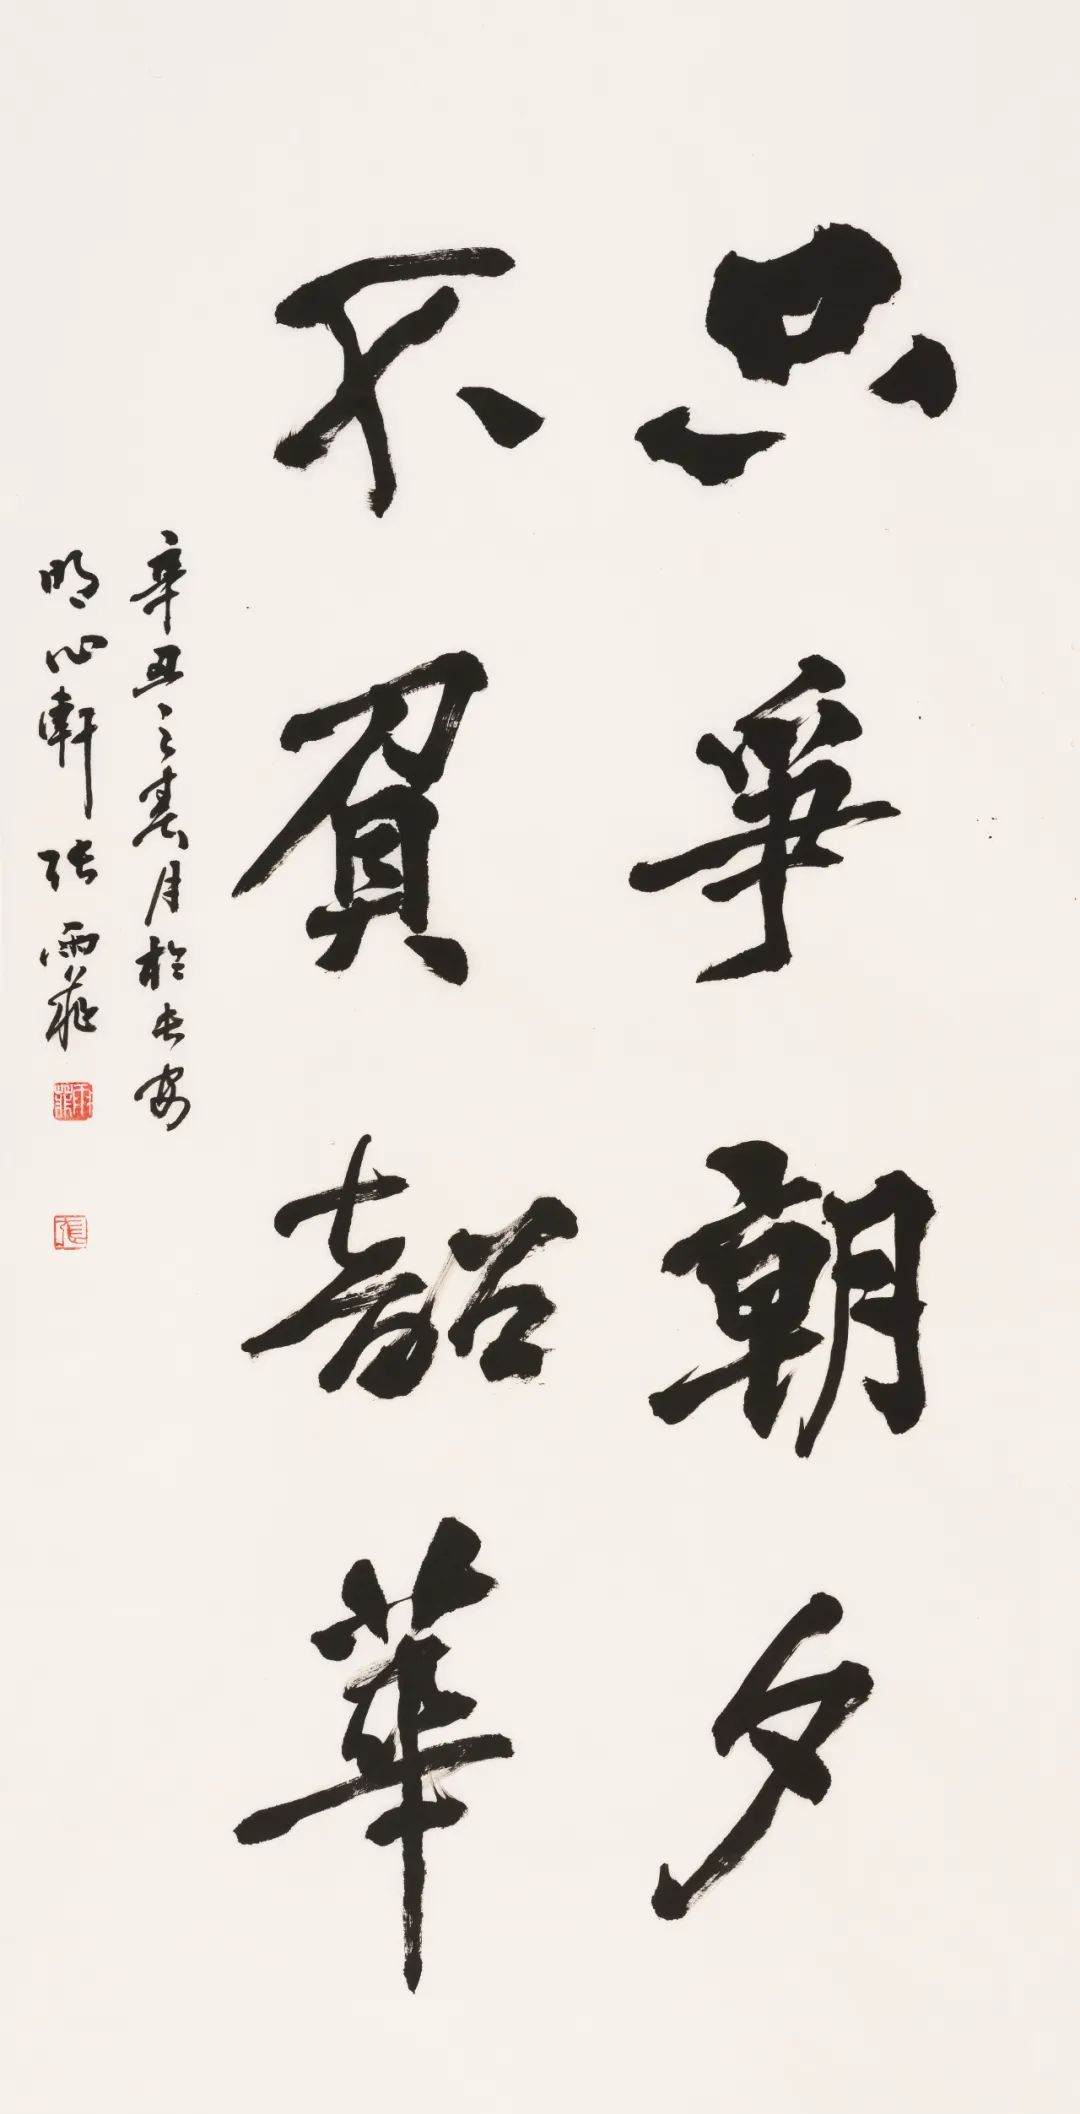 只爭朝夕
不負韶華
辛丑之春月於长安
明心軒张雨菲